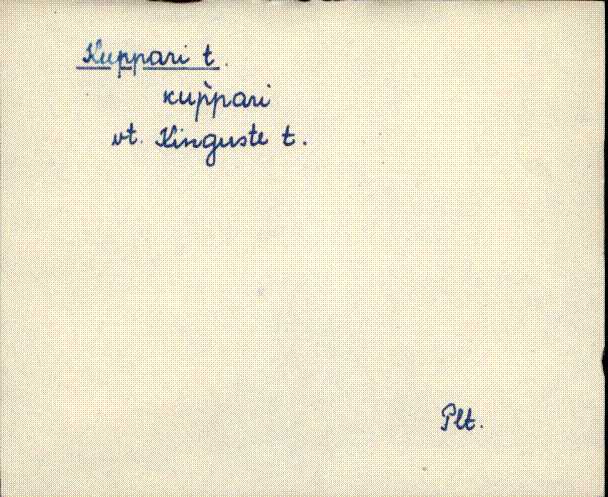 Kuppari t.
kup̀pari
vt. Kinguste t.
Plt.